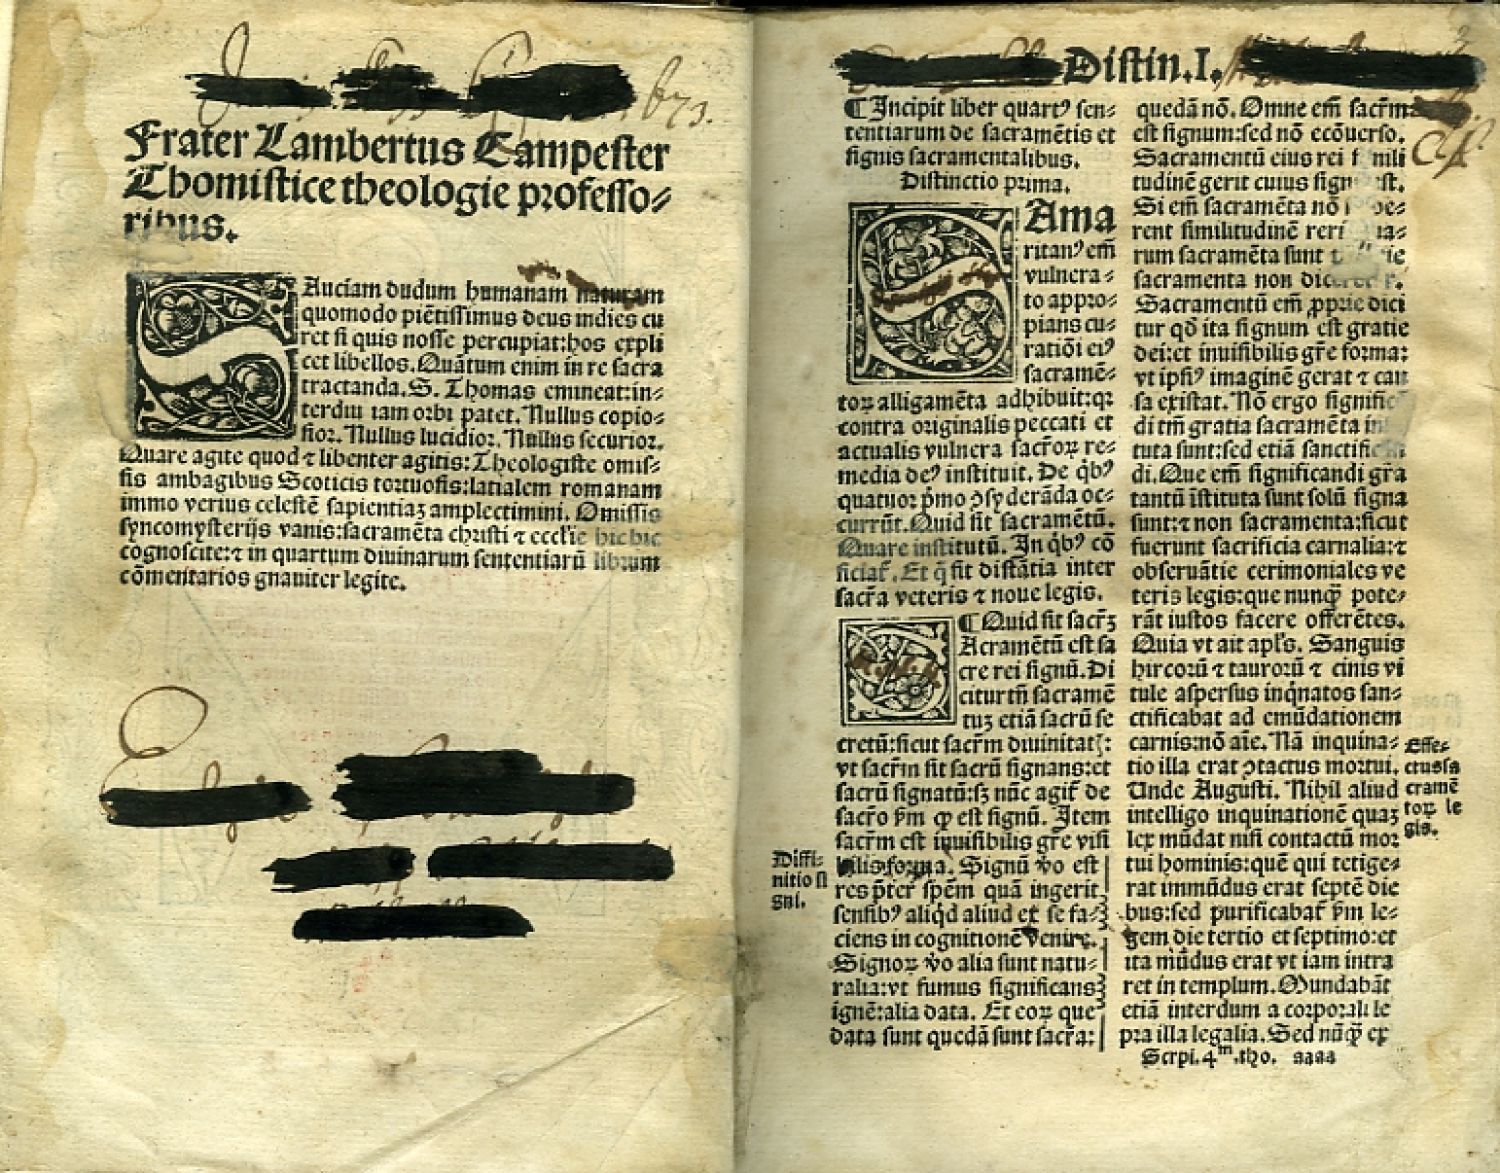 673.
Frater Lambertus Campester
Thomistice theologie professo⸗
ribus.
SAuciam dudum humanam naturam
quomodo piētissimus deus indies cu
ret si quis nosse percupiat:hos expli
cet libellos. Quātum enim in re sacra
tractanda. S. Thomas emineat:in⸗
terdiu iam orbi patet. Nullus copio⸗
sior. Nullus lucidior. Nullus securior.
Quare agite quod ⁊ libenter agitis: Theologiste omis⸗
sis ambagibus Scoticis tortuosis:latialem romanam
immo verius celestē sapientiaʒ amplectimini. Omissis
syncomysterijs vanis:sacramēta christi ⁊ ecclie hic hic
cognoscite:⁊ in quartum divinarum sententiarū librum
cōmentarios gnaviter legite.
Distin. I.
¶ Incipit liber quartꝰ sen⸗
tentiarum de sacramētis et
signis sacramentalibus.
Distinctio prima.
SAma
ritanꝰ em̄
vulnera⸗
to appro⸗
pians cu⸗
ratiōi eiꝰ
sacramē⸗
toꝝ alligamēta adhibuit:qꝛ
contra originalis peccati et
actualis vulnera sacr̄oꝝ re⸗
media deꝰ instituit. De q̄bꝰ
quatuor pͥmo ↄsyderāda oc⸗
currūt. Quid sit sacramētū.
Quare institutū. In q̄bꝰ cō
ficiat̄. Et q̄ sit distātia inter
sacr̄a veteris ⁊ noue legis.
¶ Quid sit sacr̄ʒ
SAcramētū est sa
cre rei signū. Di
citur tn̄ sacramē
tuʒ etiā sacrū se
cretū:sicut sacr̄m divinitat̄:
vt sacr̄m sit sacrū signans:et
sacrū signatū:sʒ nūc agit̄ de
sacr̄o pͥm ꝙ est signū. Item
sacr̄m est inuisibilis gr̄e visi
bilis forma. Signū v̊o est
res p̄ter spēm quā ingerit
sensibꝰ aliq̇d aliud ex se fa⸗
ciens in cognitionē venire.
Signoꝝ v̊o alia sunt natu⸗
ralia:vt fumus significans
ignē:alia data. Et eoꝝ que
data sunt quedā sunt sacr̄a:
Diffi⸗
nitio si
gni.
quedā nō. Omne em̄ sacr̄m
est signum:sed nō ecōuerso.
Sacramentū eius rei simili
tudinē gerit cuius signū est.
Si em̄ sacramēta nō
rent similitudinē rerū
rum sacramēta sunt
sacramenta non
Sacramentū em̄ ꝓprie dici
tur qd̄ ita signum est gratie
dei:et inuisibilis gr̄e forma:
vt ipsiꝰ imaginē gerat ⁊ cau
sa existat. Nō ergo
di tm̄ gratia sacramēta
tuta sunt:sed etiā
di. Que em̄ significandi gr̄a
tantū īstituta sunt solū signa
sunt:⁊ non sacramenta:sicut
fuerunt sacrificia carnalia:⁊
obseruātie cerimoniales ve
teris legis:que nunꝙ̄ pote⸗
rāt iustos facere offerētes.
Quia vt ait apl's. Sanguis
hircorū ⁊ taurorū ⁊ cinis vi
tule aspersus inq̇natos san⸗
ctificabat ad emūdationem
carnis:nō aīe. Nā inquina⸗
tio illa erat ↄtactus mortui.
Unde Augusti. Nihil aliud
intelligo inquinationē quaʒ
lex mūdat nisi contactū mor
tui hominis:quē qui tetige⸗
rat immūdus erat septē die
bus:sed purificabat̄ pͥm le⸗
gem die tertio et septimo:et
ita mūdus erat vt iam intra
ret in templum. Mundabāt
etiā interdum a corporali le
pra illa legalia. Sed nūꝙ̄ ex
Effe⸗
ctus sa
cramē
toꝝ le
gis.
Scrpi. 4m. tho. aaaa